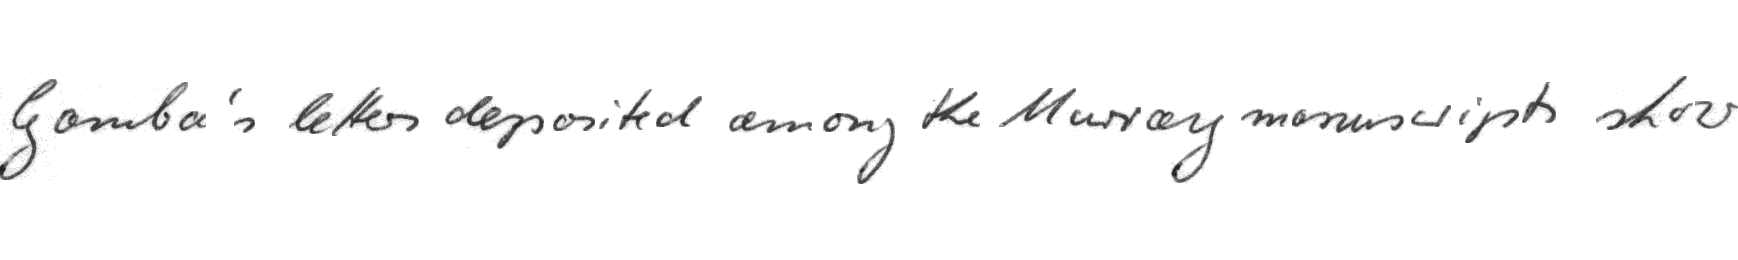 Gamba's letters deposited among the Murray manuscripts show